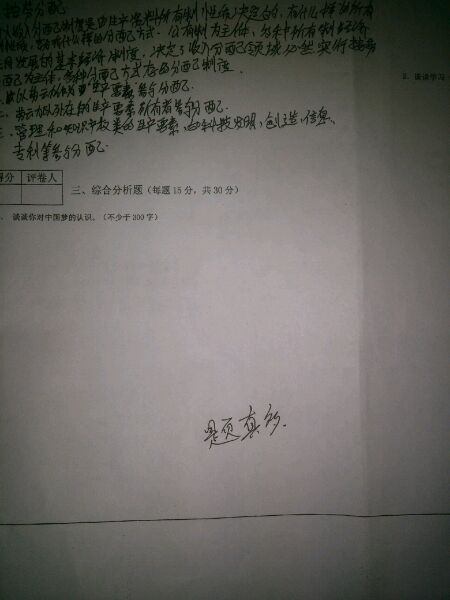 按劳分配
收入分配制度是由生产资料所有制性质决定的。有什么样的所有
制性质，就有什么样的分配方式。公有制为主体、多种所有制经济
共同发展的基本经济制度，决定了收入分配领域必然实行按劳
分配为主体，多种分配方式并存的分配制度。
以劳动力 生产要素参与分配
二、劳动以外的生产要素所有者参与分配
三、管理和知识产权类的生产要素，如科技发明、创造、信息、
专利等参与分配。
得分 评卷人
三、综合分析题（每题15分，共30分）
谈谈你对中国梦的认识。（不少于300字）
2. 谈谈学习
题真多.